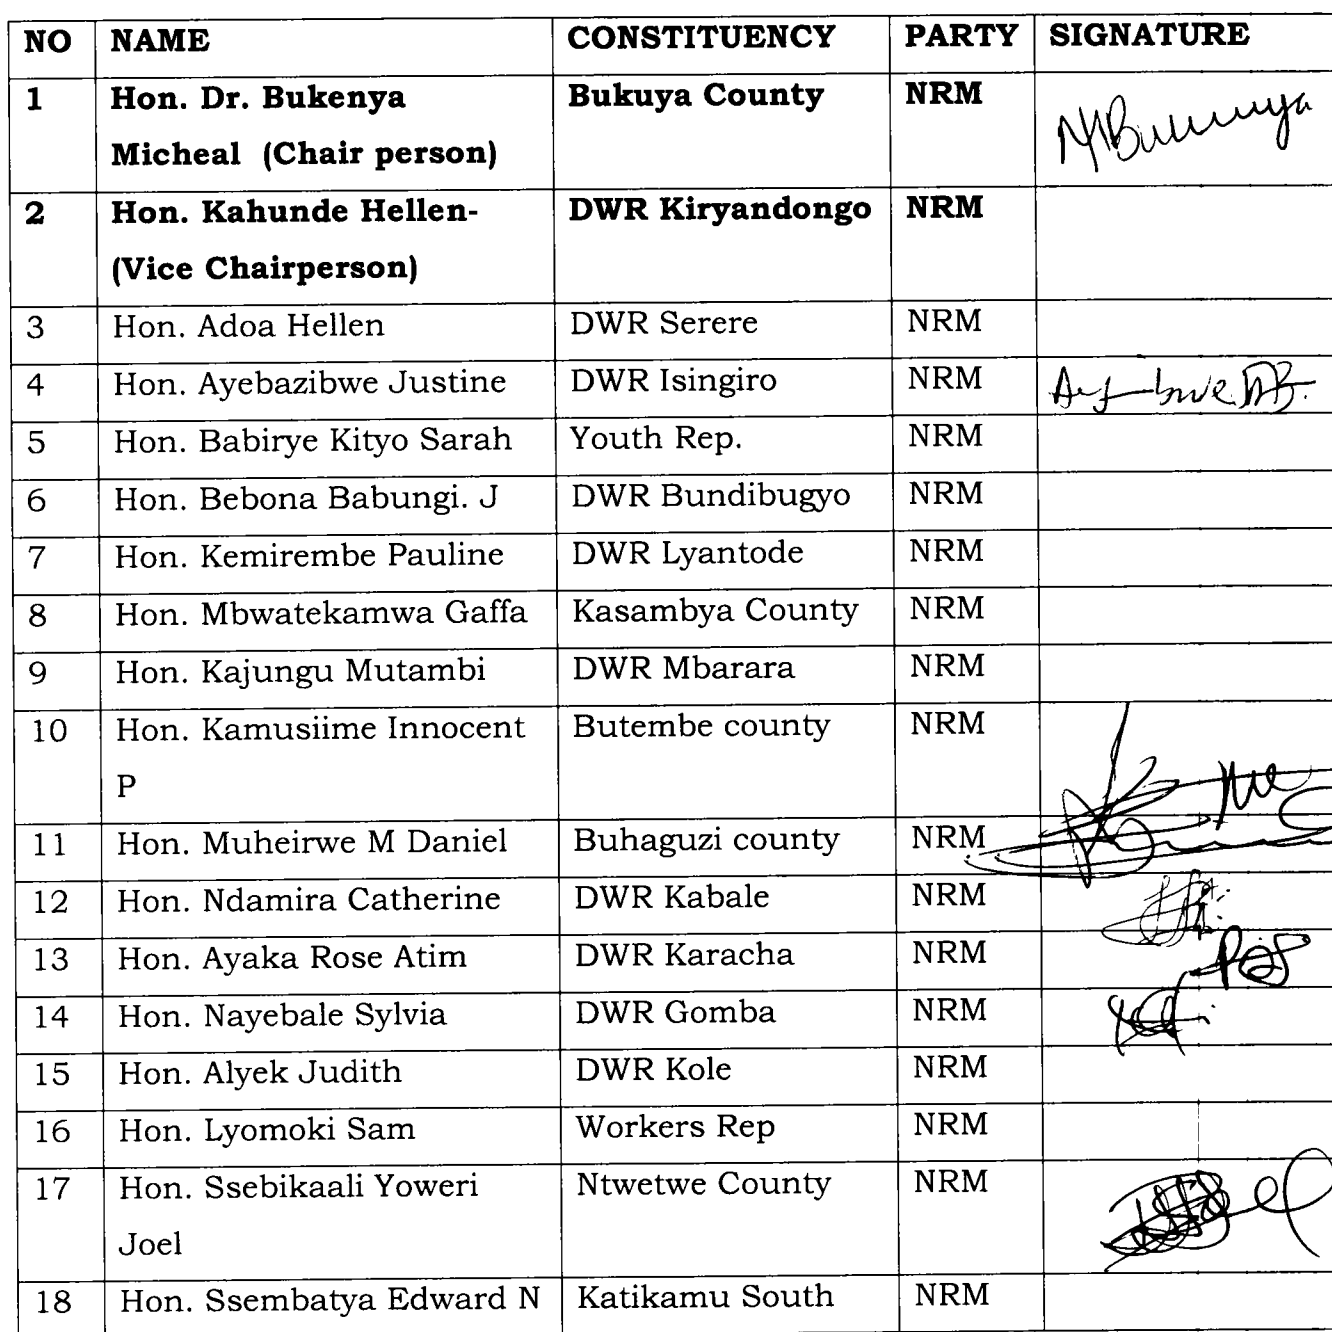 NO NAME CONSTITUENCY PARTY SIGNATURE
1 Hon. Dr. Bukenya Bukuya County NRM
Micheal (Chair person)
2 Hon. Kahunde Hellen- DWR Kiryandongo NRM
(Vice Chairperson)
3 Hon. Adoa Hellen DWR Serere NRM
4 Hon. Ayebazibwe Justine DWR Isingiro NRM
5 Hon. Babirye Kityo Sarah Youth Rep. NRM
6 Hon. Bebona Babungi. J DWR Bundibugyo NRM
7 Hon. Kemirembe Pauline DWR Lyantode NRM
8 Hon. Mbwatekamwa Gaffa Kasambya County NRM
9 Hon. Kajungu Mutambi DWR Mbarara NRM
10 Hon. Kamusiime Innocent Butembe county NRM
P
11 Hon. Muheirwe M Daniel Buhaguzi county NRM
12 Hon. Ndamira Catherine DWR Kabale NRM
13 Hon. Ayaka Rose Atim DWR Karacha NRM
14 Hon. Nayebale Sylvia DWR Gomba NRM
15 Hon. Alyek Judith DWR Kole NRM
16 Hon. Lyomoki Sam Workers Rep NRM
17 Hon. Ssebikaali Yoweri Ntwetwe County NRM
Joel
18 Hon. Ssembatya Edward N Katikamu South NRM